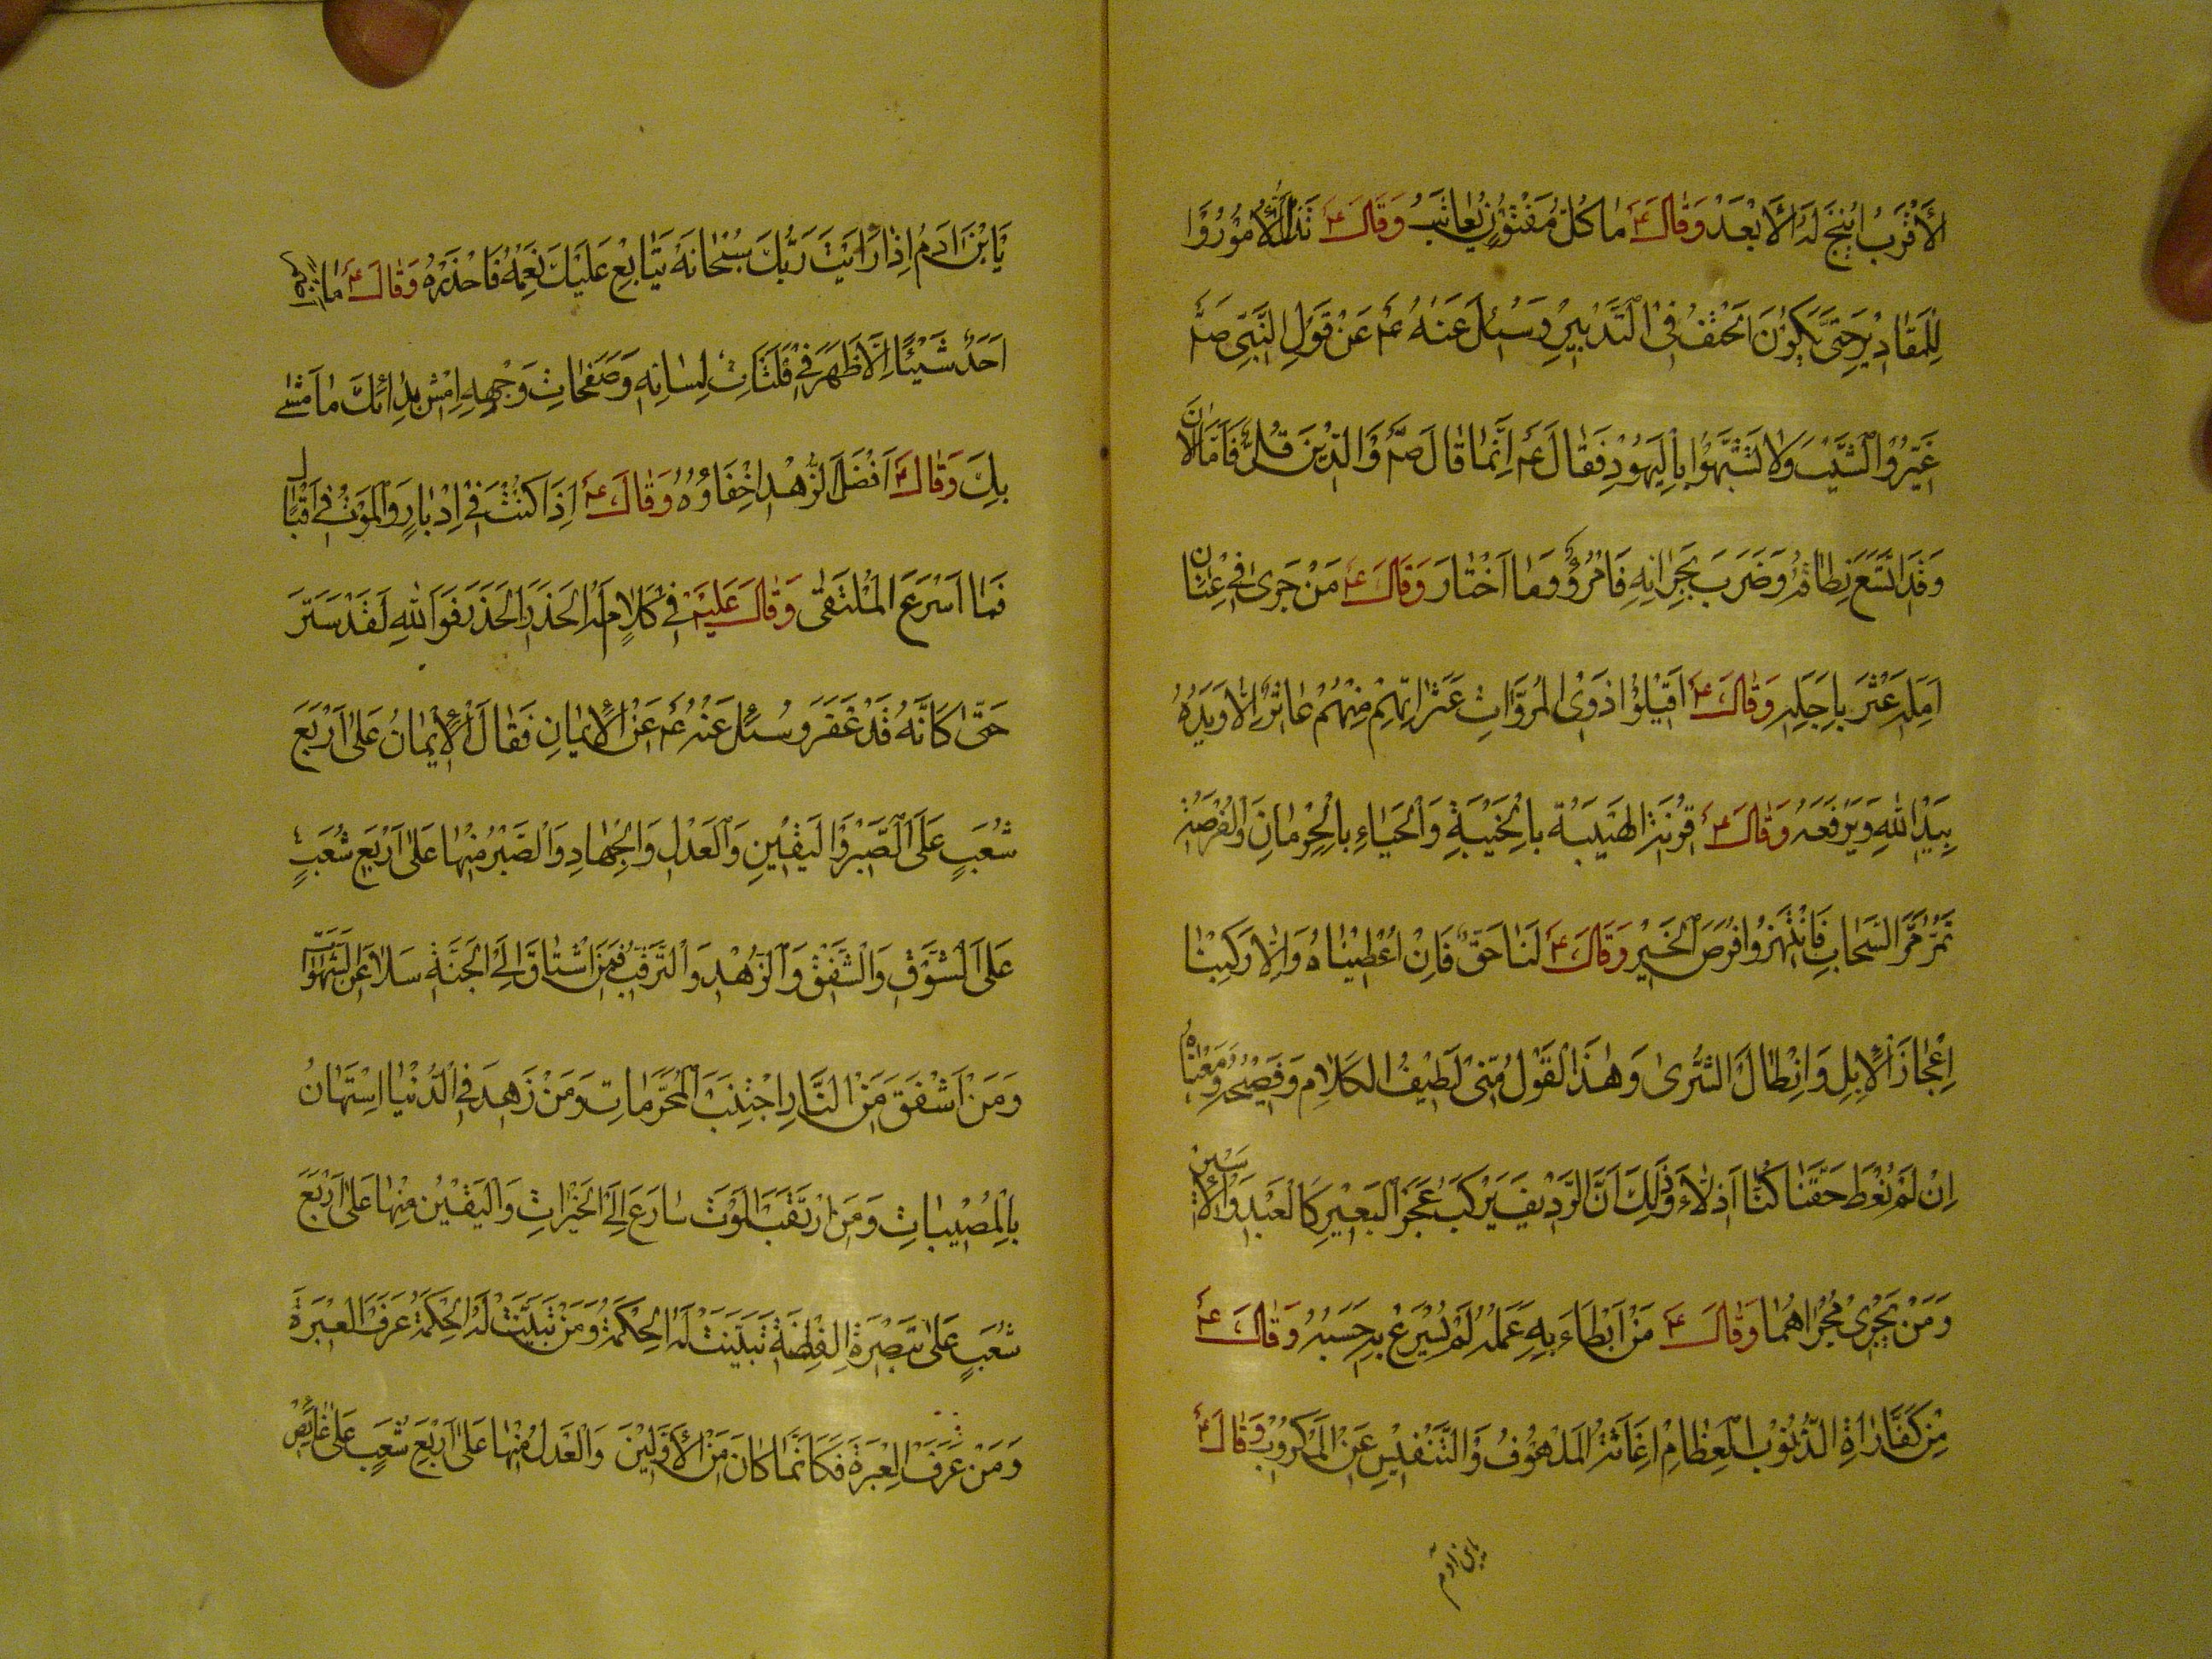 الْأَقْرَبُ اُتِيحَ لَهُ الْأَبْعَدُ وَقَالَ ع مَا كُلُّ مَفْتُونٍ يُعَاتَبُ وَقَالَ ع تَذِلُّ الْأُمُورُ
لِلْمَقَادِيرِ حَتَّى يَكُونَ الْحَتْفُ فِي التَّدْبِيرِ وَسُئِلَ عَنْهُ ع عَنْ قَوْلِ النَّبِيِّ صَم
غَيِّرُوا الشَّيْبَ وَلَا تَشَبَّهُوا بِالْيَهُودِ فَقَالَ ع إِنَّمَا قَالَ صَم وَالدِّينُ قُلٌّ فَأَمَّا الْآنَ
وَقَدِ اتَّسَعَ نِطَاقُهُ وَضَرَبَ بِجِرَانِهِ فَامْرُؤٌ وَمَا اخْتَارَ وَقَالَ ع مَنْ جَرَى فِي عِنَانِ
أَمَلِهِ عَثَرَ بِأَجَلِهِ وَقَالَ ع أَقِيلُوا ذَوِي الْمُرُوَّاتِ عَثَرَاتِهِمْ مِنْهُمْ عَاثِرٌ إِلَّا وَيَدُهُ
بِيَدِ اللهِ وَيَرْفَعُهُ وَقَالَ ع قُرِنَتِ الْهَيْبَةُ بِالْخَيْبَةِ وَالْحَيَاءُ بِالْحِرْمَانِ وَالْفُرْصَةُ
تَمُرُّ مَرَّ السَّحَابِ فَانْتَهِزُوا فُرَصَ الْخَيْرِ وَقَالَ ع لَنَا حَقٌّ فَإِنْ أُعْطِينَاهُ وَإِلَّا رَكِبْنَا
اعْجَازَ الْإِبِلِ وَانِطَالَ السُّرَى وَهٰذَا الْقَوْلُ مِنْ لَطِيفِ الْكَلَامِ وَفَصِيحِهِ وَمَعْنَاهُ
إِنْ لَمْ نُعْطَ حَقَّنَا كُنَّا أَذِلَّاءَ وَذٰلِكَ أَنَّ الرَّدِيفَ يَرْكَبُ عَجُزَ الْبَعِيرِ كَالْعَبْدِ وَالْأَسِيرِ
وَمَنْ يَجْرِي مَجْرَاهُمَا وَقَالَ ع مَنْ أَبْطَاءَ بِهِ عَمَلُهُ لَمْ يُسْرِعْ بِهِ حَسَبُهُ وَقَالَ ع
مِنْ كَفَّارَاةِ الذُّنُوبِ الْعِظَامِ إِغَاثَةُ الْمَلْهُوفِ وَالتَّنْفِيسُ عَنِ الْمَكْرُوبِ وَقَالَ ع
يَابْنَ اٰدَمُ إِذَا رَأَيْتَ رَبَّكَ سُبْحَانَهُ يُتَابِعُ عَلَيْكَ نِعَمَهُ فَاحْذَرْهُ وَقَالَ ع مَا
أَحَدٌ شَيْئًا إِلَّا ظَهَرَ فِي فَلَتَاتِ لِسَانِهِ وَصَفَحَاتِ وَجْهِهِ امْشِ بِدَائِكَ مَا مَشَى
بِكَ وَقَالَ ع أَفْضَلُ الزُّهْدِ إِخْفَاؤُهُ وَقَالَ ع إِذَا كُنْتَ فِي إِدْبَارٍ وَالْمَوْتُ فِي إِقْبَالٍ
فَمَا أَسْرَعَ الْمُلْتَقَى وَقَالَ عَلَيْهِ فِي كَلَامٍ لَهُ الْحَذَرَ الْحَذَرَ فَوَاللهِ لَقَدْ سَتَرَ
حَتَّى كَأَنَّهُ قَدْ غَفَرَ وَسُئِلَ عَنْهُ ع عَنِ الْإِيمَانِ فَقَالَ الْإِيمَانُ عَلَى أَرْبَعِ
شُعَبٍ عَلَى الصَّبْرِ وَالْيَقِينِ وَالْعَدْلِ وَالْجِهَادِ وَالصَّبْرُ مِنْهَا عَلَى أَرْبَعِ شُعَبٍ
عَلَى الشَّوْقِ وَالشَّفَقِ وَالزُّهْدِ وَالتَّرَقُّبِ فَمَنِ اشْتَاقَ إِلَى الْجَنَّةِ سَلَا عَنِ الشَّهَوَاتِ
وَمَنْ أَشْفَقَ مِنَ النَّارِ اجْتَنَبَ الْمُحَرَّمَاتِ وَمَنْ زَهِدَ فِي الدُّنْيَا اسْتَهَانَ
بِالْمُصِيبَاتِ وَمَنِ ارْتَقَبَ الْمَوْتَ سَارَعَ إِلَى الْخَيْرَاتِ وَالْيَقِينُ مِنْهَا عَلَى أَرْبَعِ
شُعَبٍ عَلَى تَبْصِرَةِ الْفِطْنَةِ تَبَيَّنَتْ لَهُ الْحِكْمَةُ وَمَنْ تَبَيَّنَتْ لَهُ الْحِكْمَةُ عَرَفَ الْعِبْرَةَ
وَمَنْ عَرَفَ الْعِبْرَةَ فَكَأَنَّمَا كَانَ مِنَ الْأَوَّلِينَ وَالْعَدْلُ مِنْهَا عَلَى أَرْبَعِ شُعَبٍ عَلَى غَايِصِ